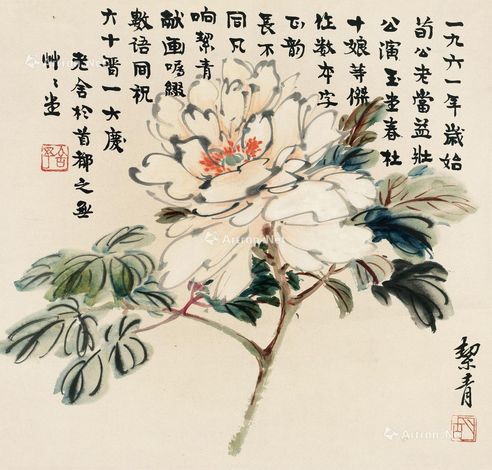 一九六一年歲始
荀公老當益壯
公演玉堂春杜
十娘等傑
作數本字
正韵
長不
同凡
响絜青
献画嘱綴
數語同祝
六十晋一大慶
老舍於首都之
絜青
Artron.Net
Artron.Net
Artron.Net